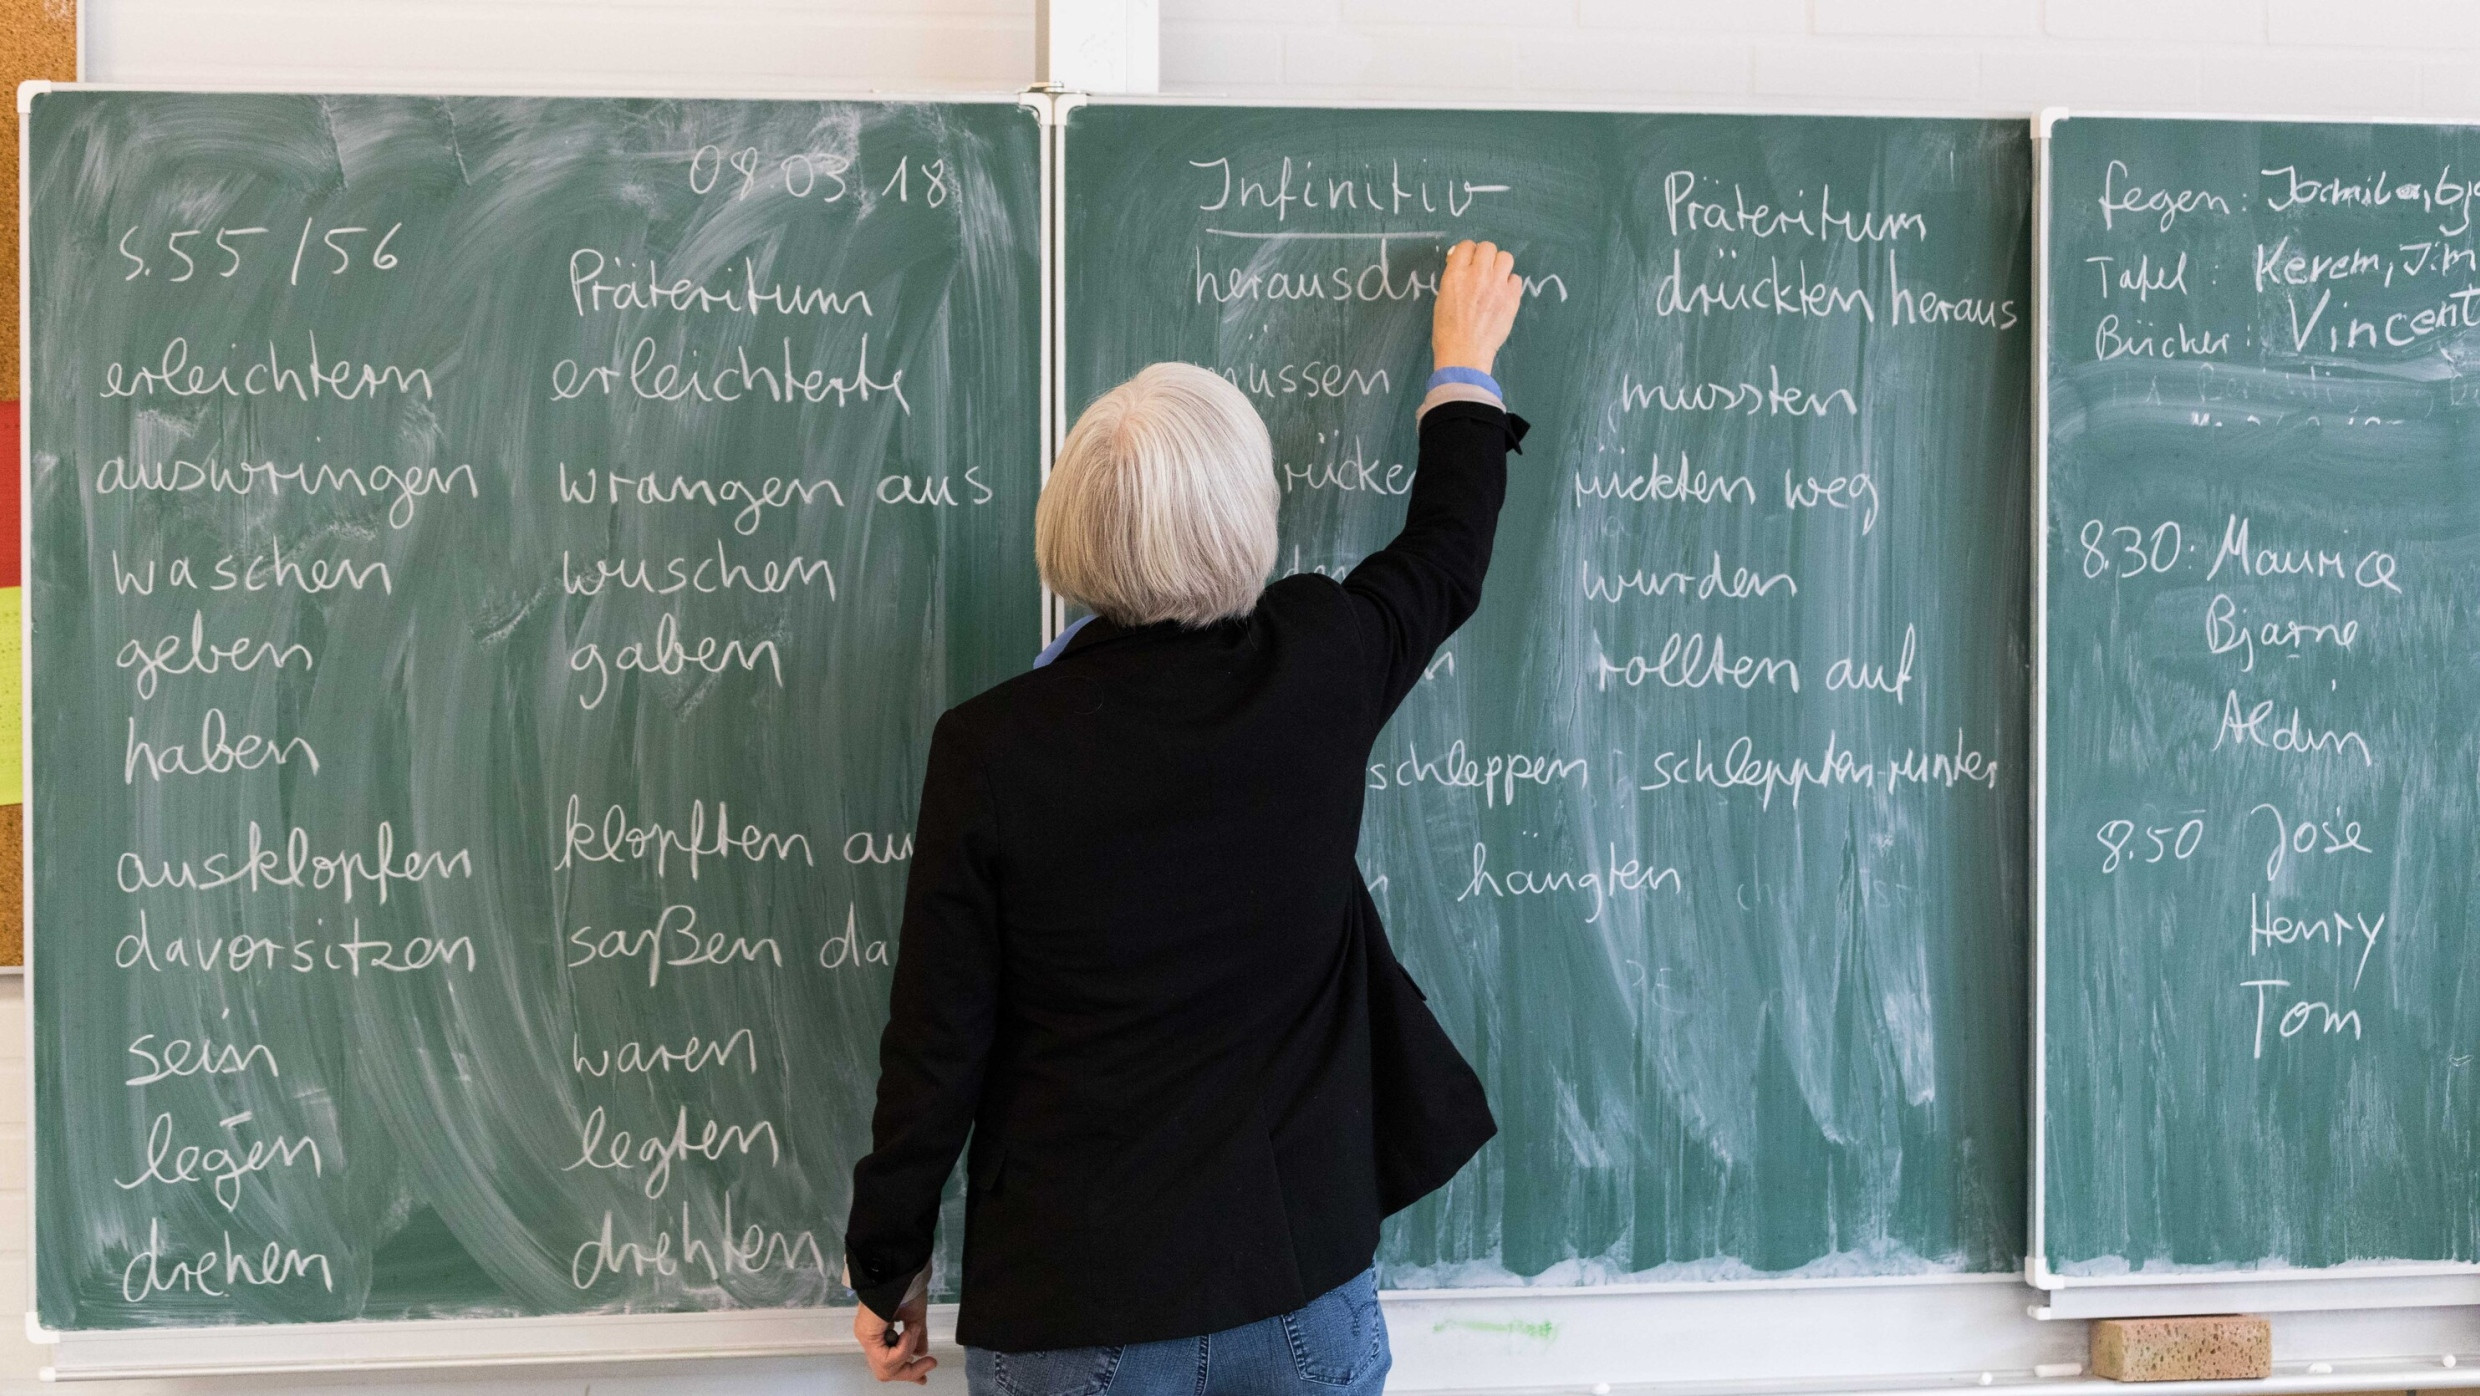 08.03.18
S.55/56
Präteritum
erleichtern erleichterte
auswringen wrangen aus
waschen wuschen
geben gaben
haben
ausklopfen klopften
davorsitzen saßen
sein waren
legen legten
drehen drehten
Infinitiv Präteritum
drückten heraus
müssen mussten
rückten weg
wurden
rollten auf
schleppen schleppten runter
hängten
fegen:
Tafel: Kerem, Jim
Bücher: Vincent
8.30: Maurice
Bjarne
Aldin
8.50 José
Henry
Tom